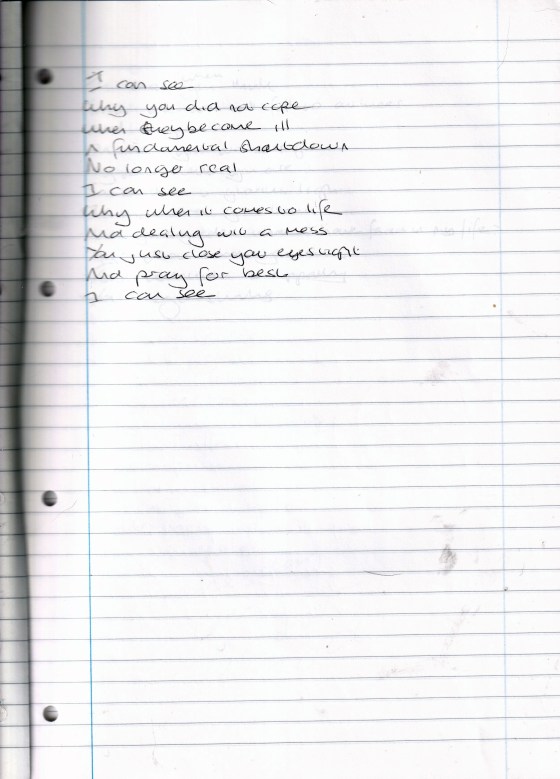 I can see
Why you did not cope
When they become ill
A fundamental Shutdown
No longer real
I can see
Why when it comes to life
And dealing with a mess
You just close you eyes tight
And pray for best
I can see